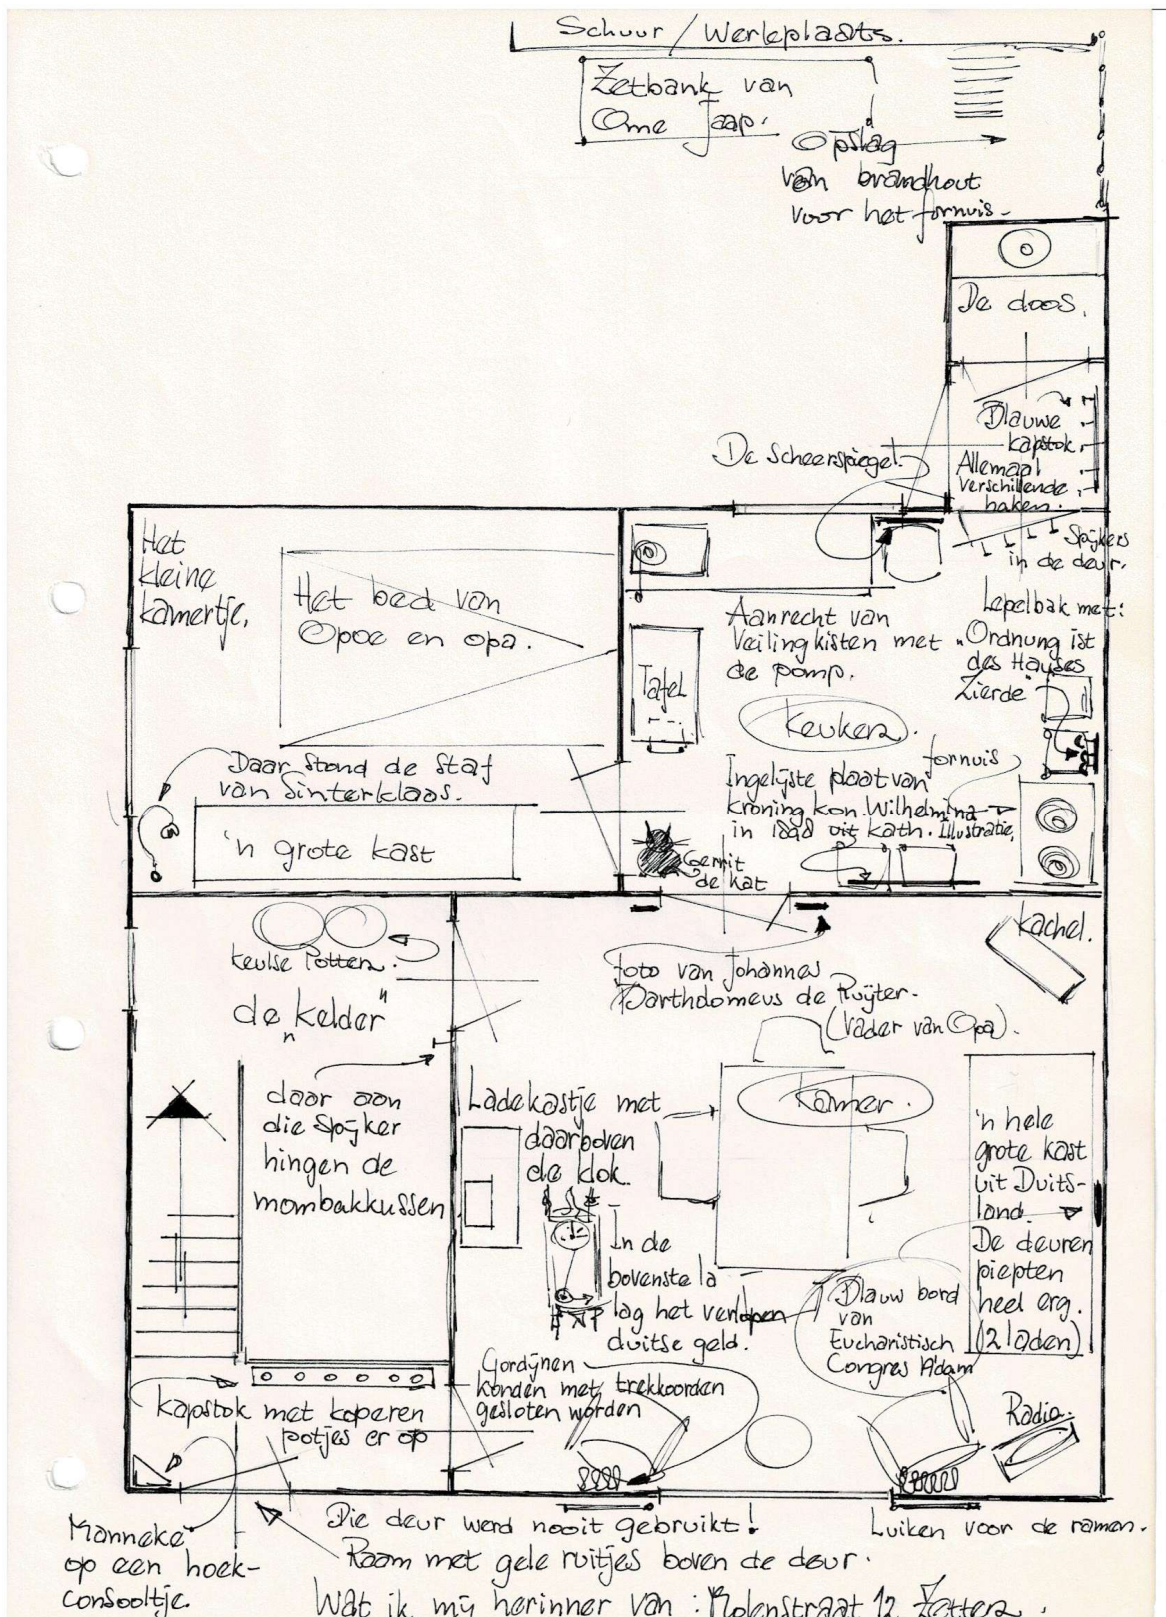 Schuur / Werkplaats.
Zetbank van
Ome Jaap.
Opslag
van brandhout
voor het fornuis.
De doos.
Blauwe
kapstok.
Allemaal
verschillende
haken.
De Scheerspiegel.
Spijkers
in de deur.
Het
kleine
kamertje.
Het bed van
Opoe en opa.
Aanrecht van
Veilingkisten met
de pomp.
Lepelbak met:
"Ordnung ist
des Hauses
Zierde"
Tafel
Keuken.
fornuis
Daar stond de staf
van Sinterklaas.
'n grote kast
Ingelijste plaat van
kroning kon. Wilhelmina
in 1898 uit kath. Illustratie.
Gerrit
de kat
Keulse Potten.
de "kelder"
foto van Johannes
Barthdomeus de Ruijter.
(Vader van Opa).
Kachel.
daar aan
die Spijker
hingen de
mombakkussen
Ladekastje met
daarboven
de klok.
Kamer.
'n hele
grote kast
uit Duits-
land.
De deuren
piepten
heel erg.
(2 laden)
In de
bovenste la
lag het verlopen
duitse geld.
Blauw bord
van
Eucharistisch
Congres A'dam
Gordijnen
konden met trekkoorden
gesloten worden
kapstok met koperen
potjes er op
Radio.
Manneke
op een hoek-
consooltje.
Die deur werd nooit gebruikt!
Raam met gele ruitjes boven de deur.
Luiken voor de ramen.
Wat ik mij herinner van : Molenstraat 12 Zetten.